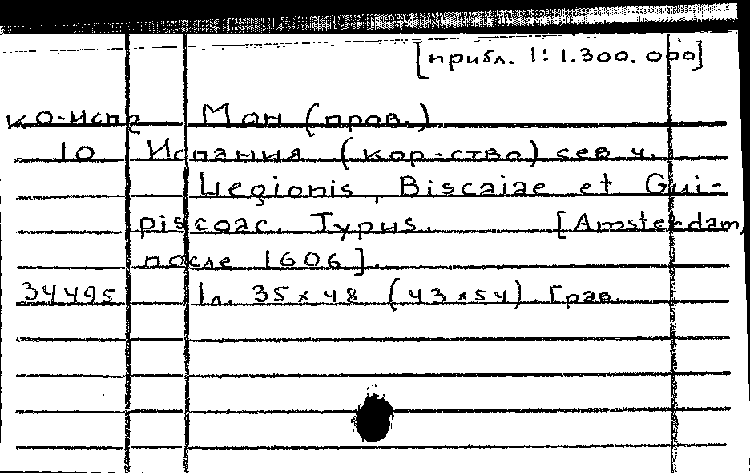 [прибл. 1:1.300.000]
ко-испр Ман (пров.)
10 Испания (кор-ство) сев ч.
Legionis, Biscaiae et Gui-
piscoac. Typus. [Amsterdam,
после 1606].
34495 1л. 35х48 (43х54) Грав.